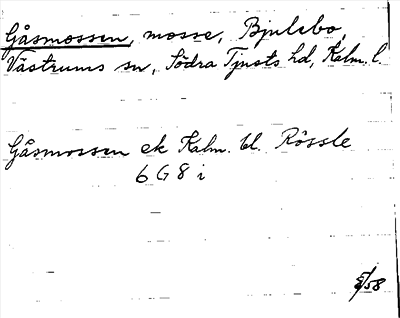 Gåsmossen, mosse, Bjulebo,
Västrums sn, Södra Tjusts hd, Kalm. l.
Gåsmossen ek Kalm. bl. Rössle
6 G 8 i
/58